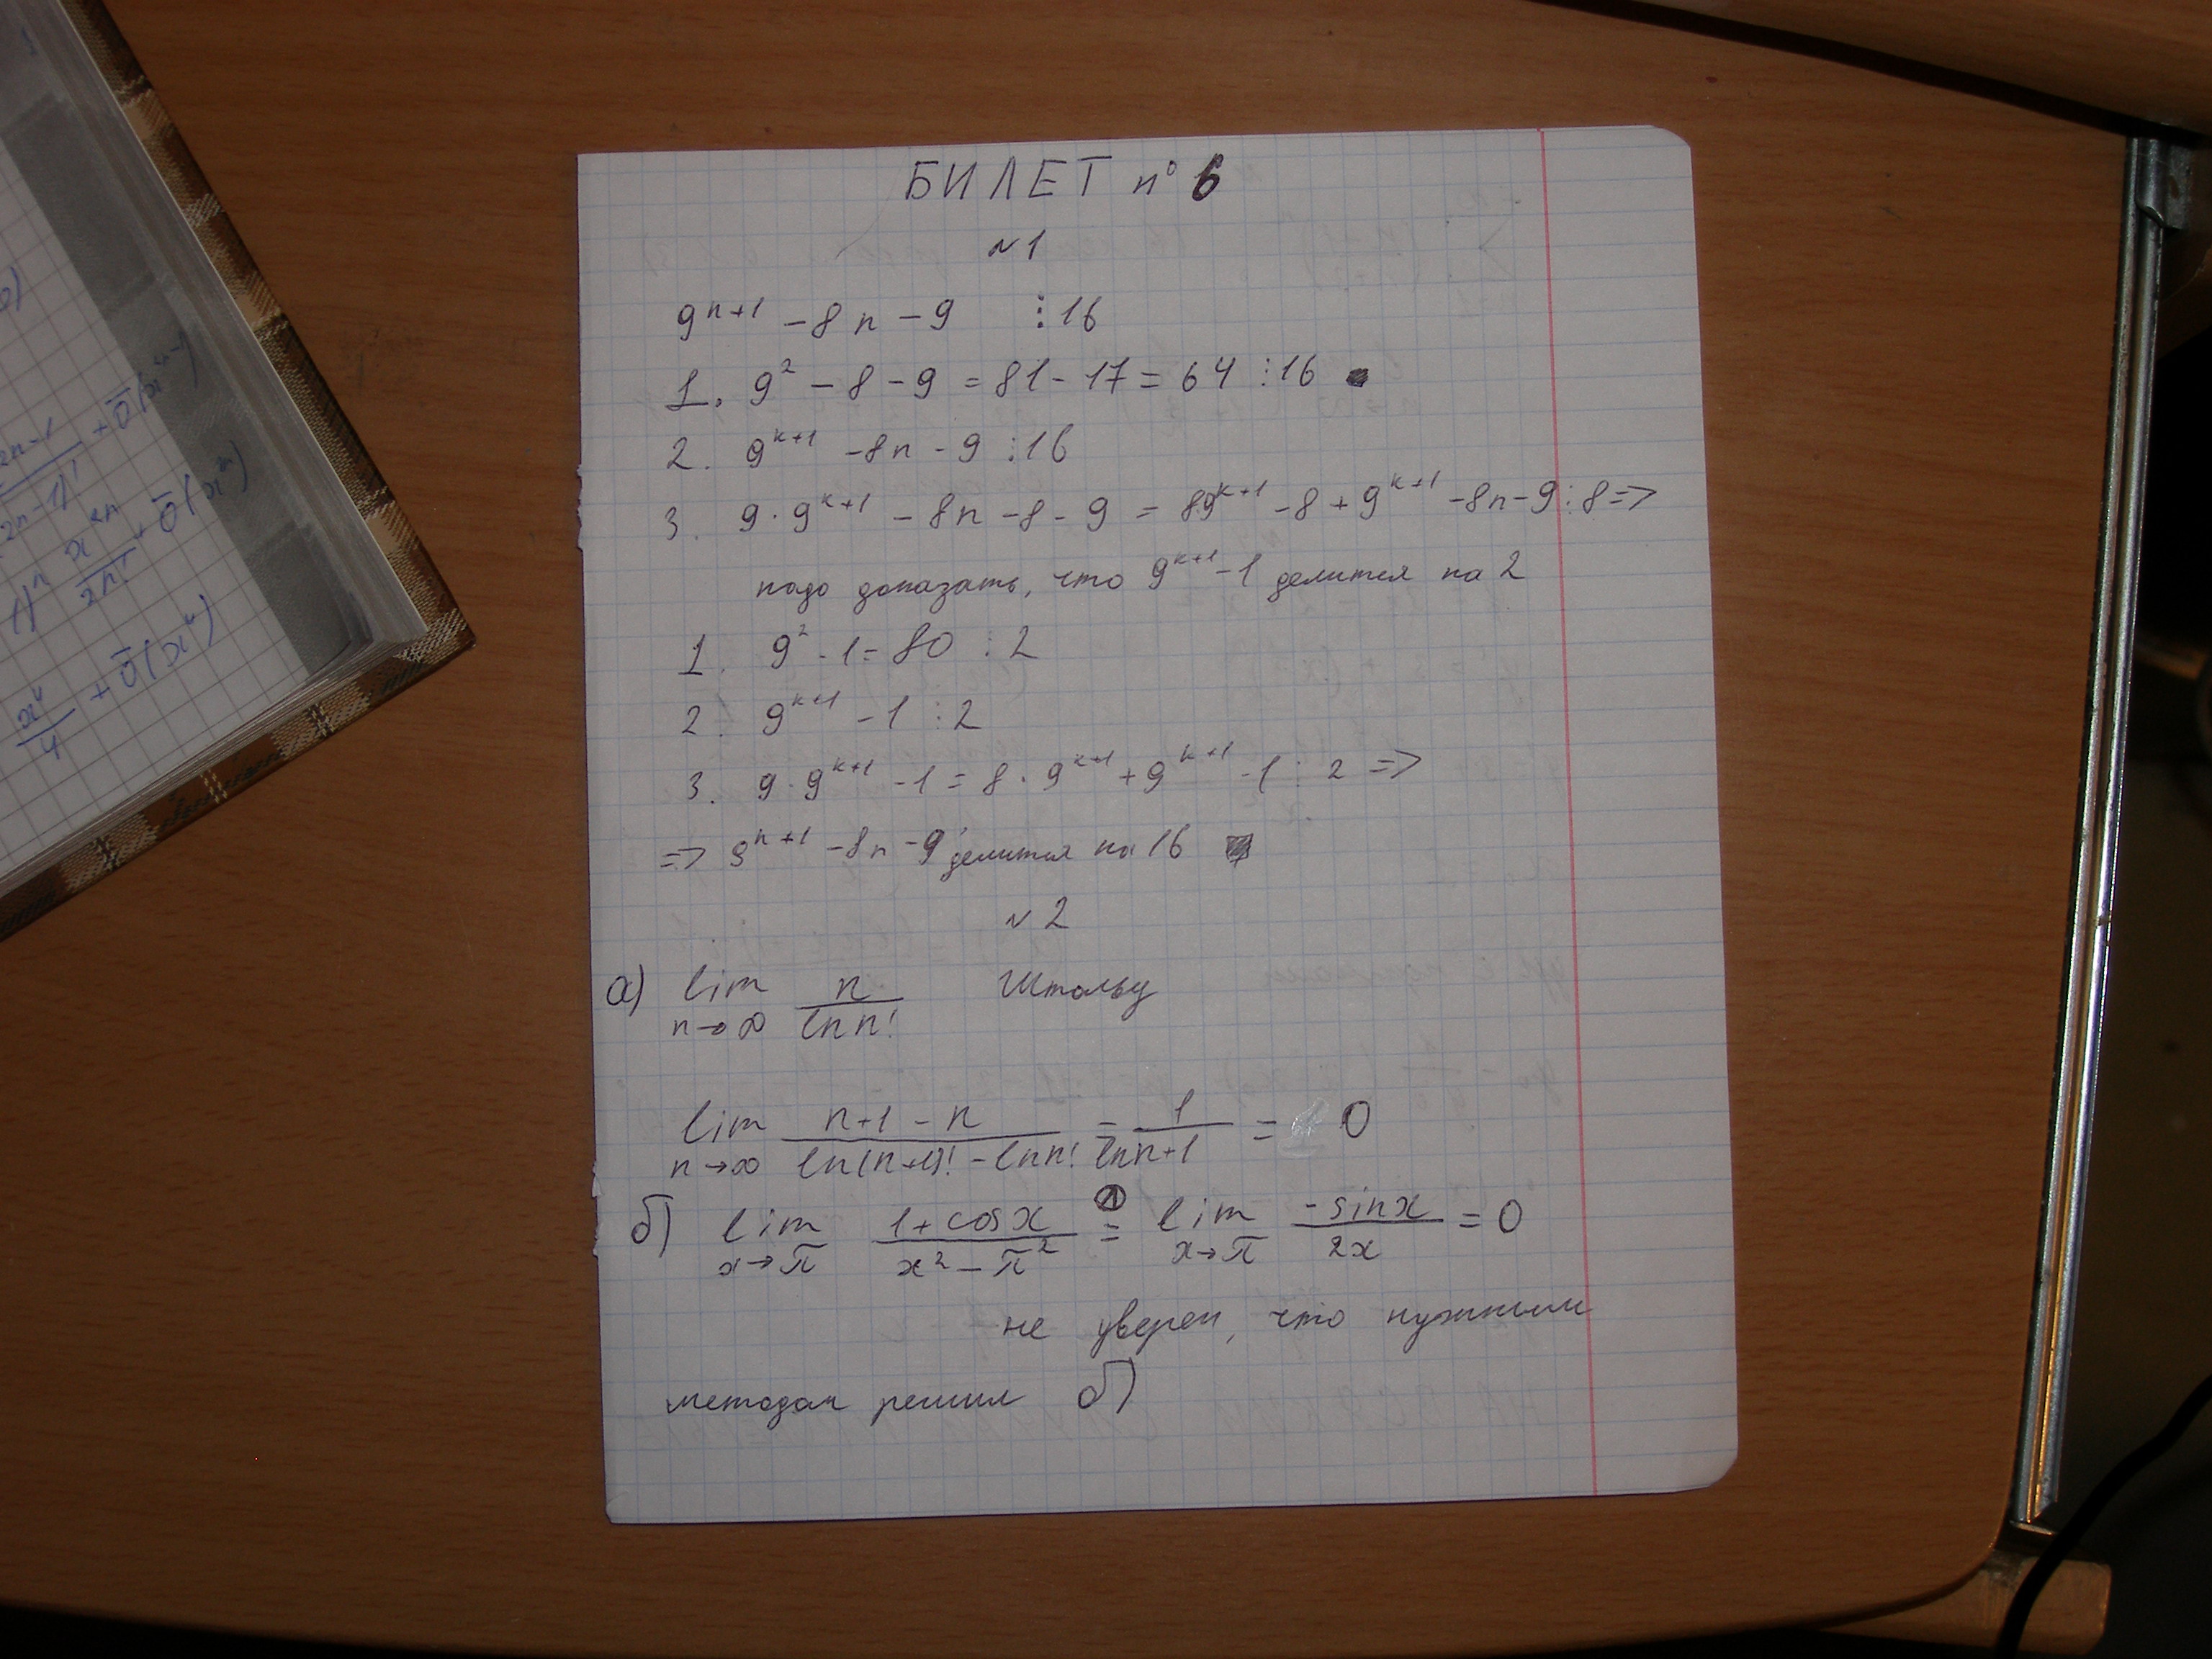 БИЛЕТ n° 6
N1
9^{n+1} - 8n - 9 ⋮ 16
1. 9^2 - 8 - 9 = 81 - 17 = 64 ⋮ 16
2. 9^{k+1} - 8n - 9 ⋮ 16
3. 9 · 9^{k+1} - 8n - 8 - 9 = 8·9^{k+1} - 8 + 9^{k+1} - 8n - 9 ⋮ 8 =>
надо доказать, что 9^{k+1} - 1 делится на 2
1. 9^2 - 1 = 80 ⋮ 2
2. 9^{k+1} - 1 ⋮ 2
3. 9 · 9^{k+1} - 1 = 8 · 9^{k+1} + 9^{k+1} - 1 ⋮ 2 =>
=> 9^{n+1} - 8n - 9 делится на 16
N2
а) lim_{n→∞} n / ln n! Штольц
lim_{n→∞} (n+1-n) / (ln(n+1)! - ln n!) = 1 / ln n+1 = 0
б) lim_{x→π} (1 + cos x) / (x^2 - π^2) =^{①} lim_{x→π} (-sin x) / 2x = 0
не уверен, что нужным
методом решил б)
2n-1
(2n-1)! + ō(x
1)^n x^{2n} / 2n! + ō(x
x^4 / 4 + ō(x